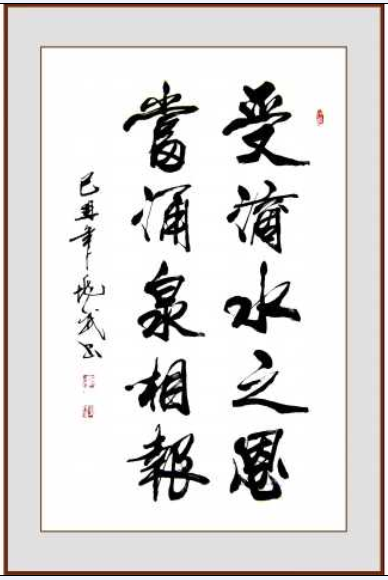 受滴水之恩
當涌泉相報
己丑年武书